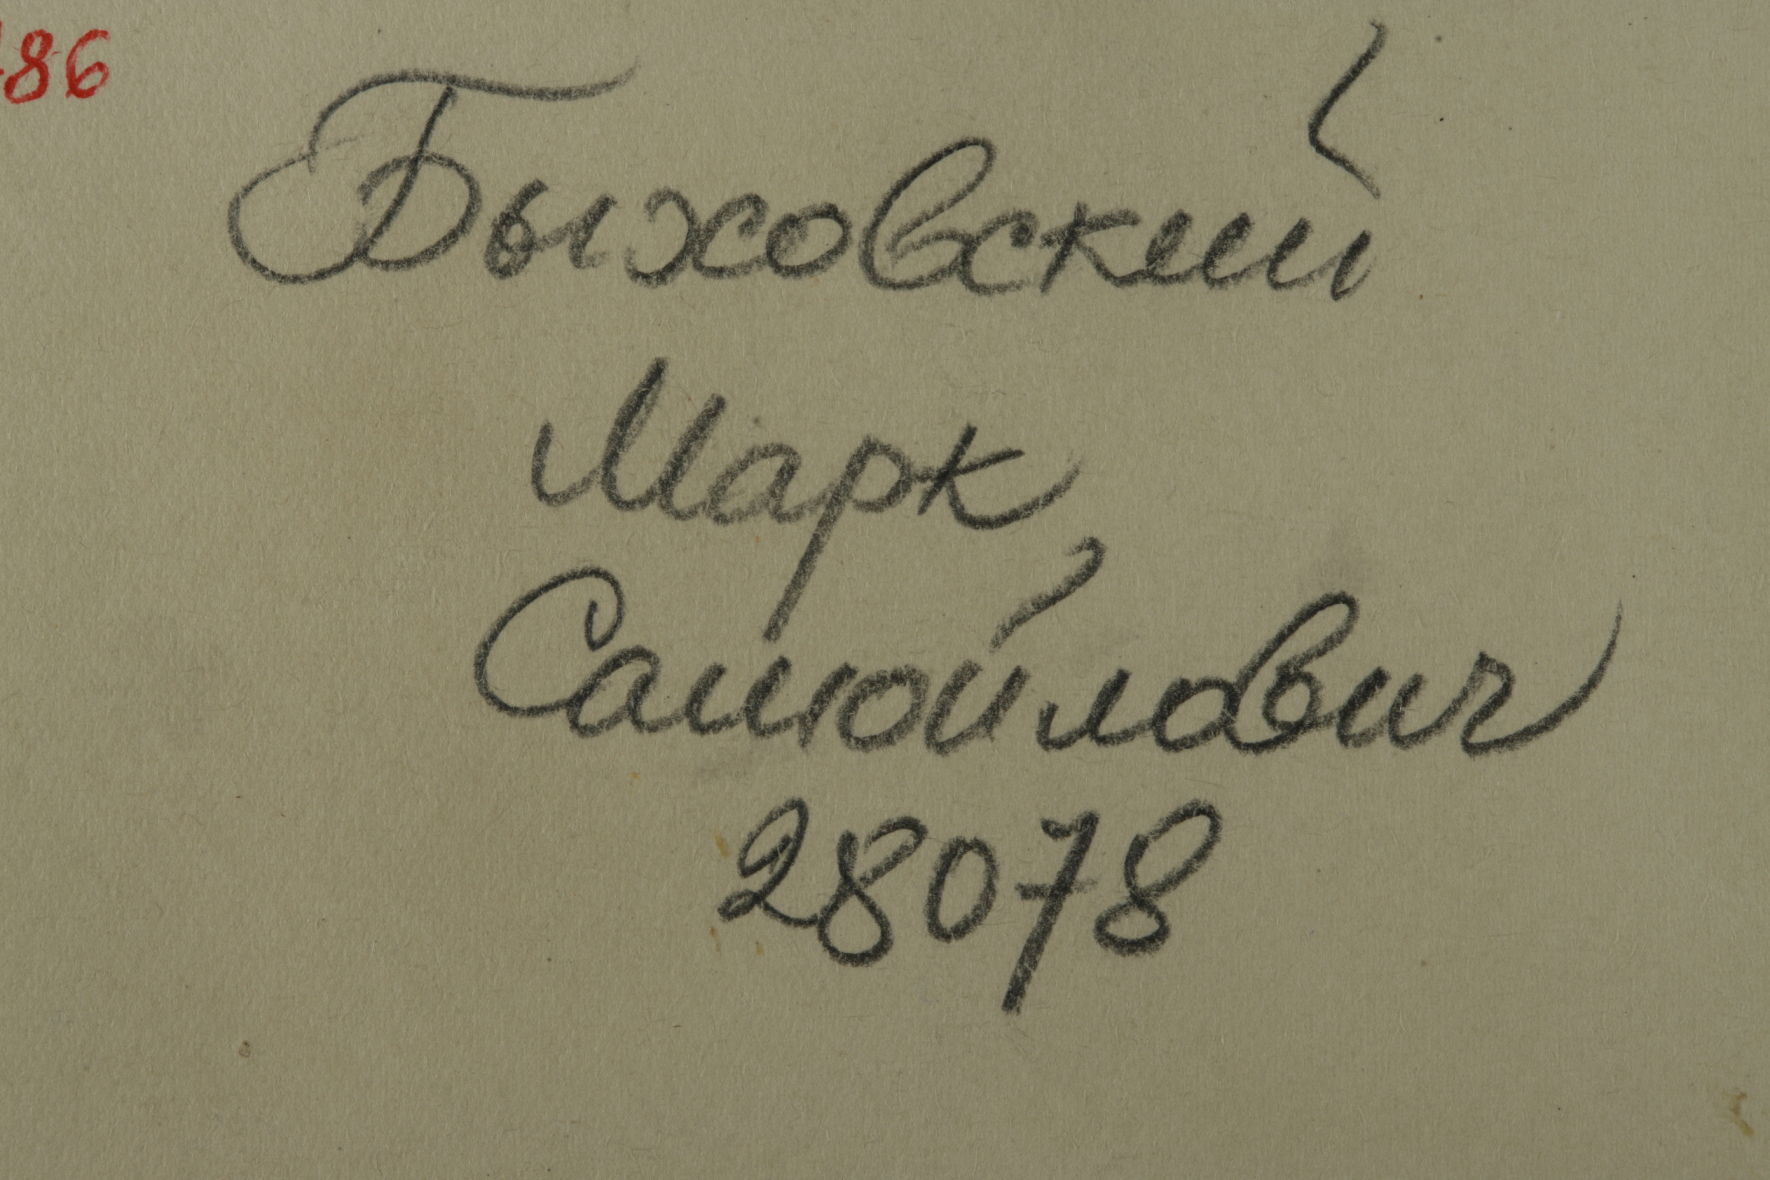 86
Быховский
Марк
Самойлович
28078